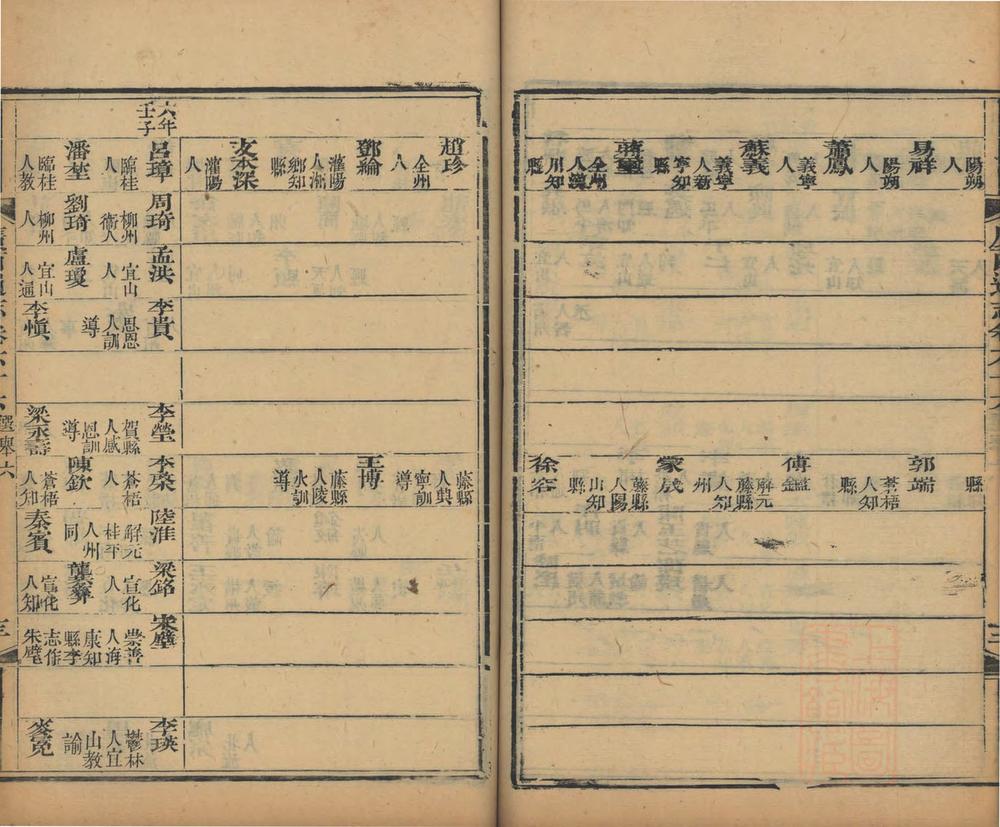 陽朔人
易祥 陽朔人
蕭鳳 義寧人
蘇義 義寧人新寧知縣
蔣璽 全州人漢川知縣
縣
郭端 蒼梧人知縣
傅鑑 解元藤縣人知州
蒙晟 藤縣人陽山知縣
徐容
趙珍 全州人
鄧綸 灌陽人湘鄉知縣
文本深 灌陽人
藤縣人興寧訓導
王博 藤縣人陵水訓導
六年壬子
呂璋 臨桂人
周琦 柳州衞人
孟洪 宜山人
李貴 思恩人訓導
李瑩 賀縣人感恩訓導
李榮 蒼梧人
陸淮 解元桂平人州同
梁銘 宣化人
宋璧 崇善人海康知縣李志作朱璧
李瑛 鬱林人宜山教諭
潘埜 臨桂人教
劉琦 柳州人
盧瓊 宜山人通
李愼
梁丞壽
陳欽 蒼梧人知
秦賓
龔彜 宣化人知
麥冕
選舉六